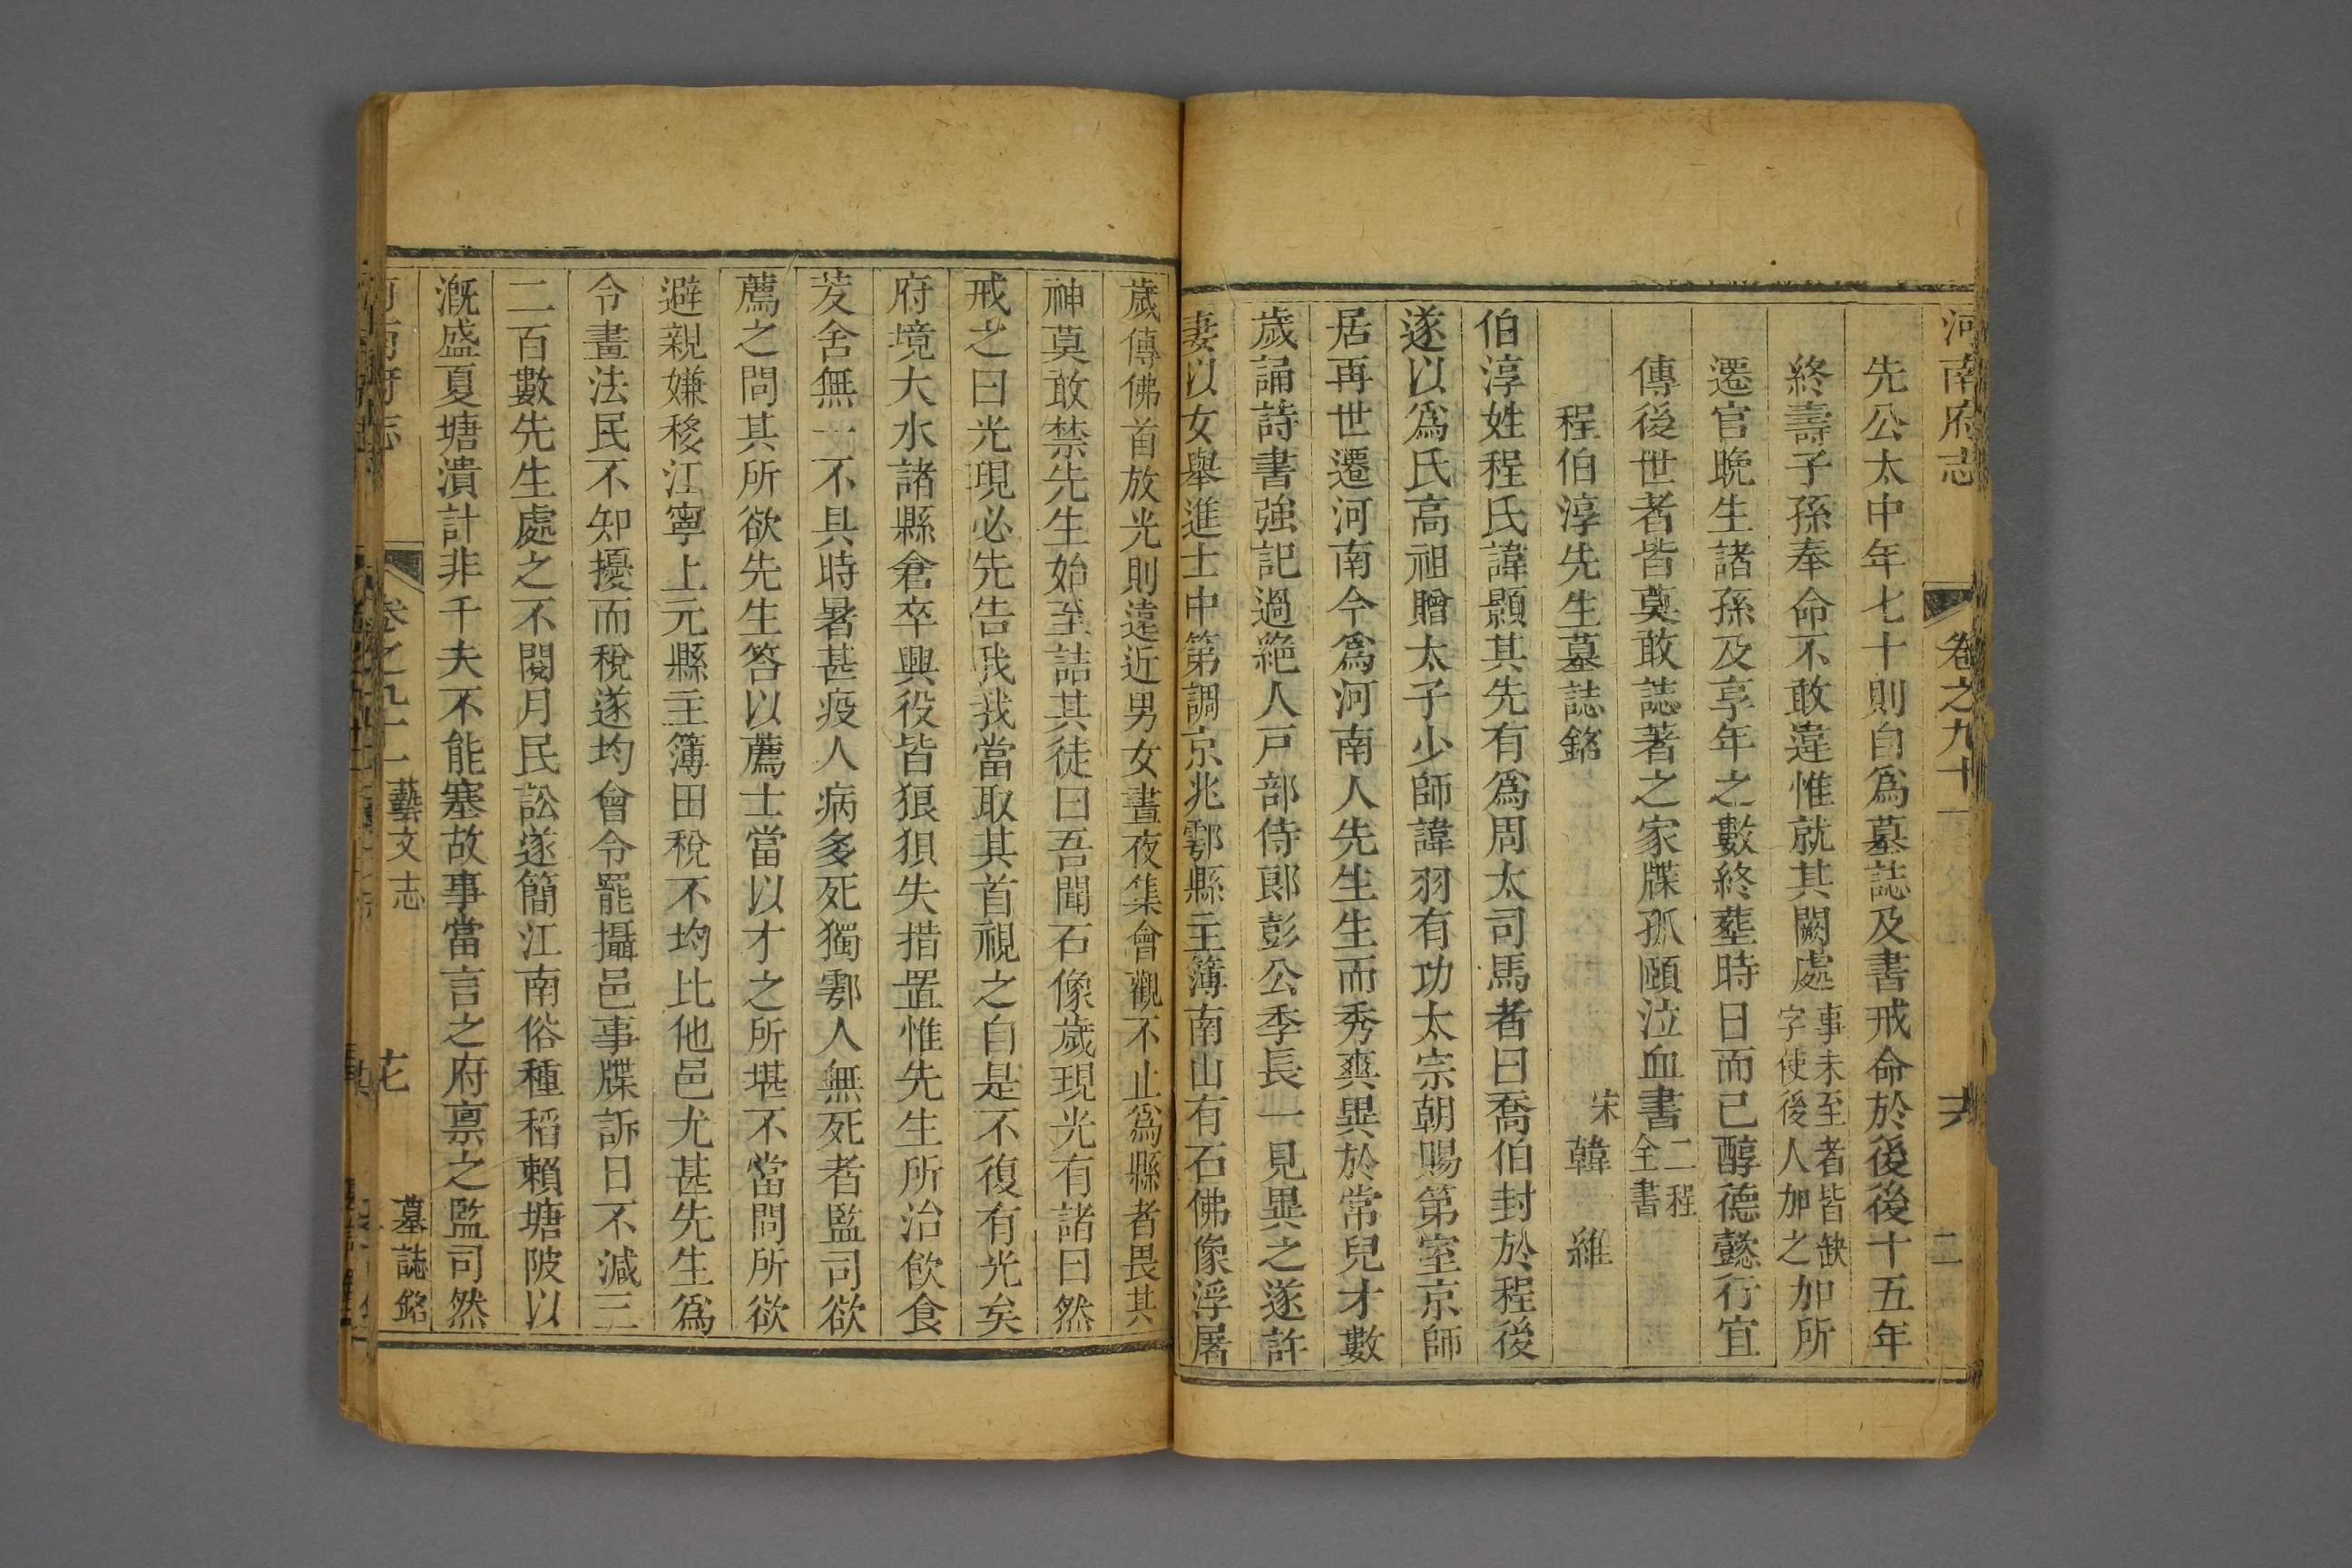 河南府志 卷之九十一 六
先公太中年七十則自爲墓誌及書戒命於後後十五年
終壽子孫奉命不敢違惟就其闕處事未至者皆缺字使後人加之加所
遷官晚生諸孫及享年之數終葬時日而已醇德懿行宜
傳後世者皆莫敢誌著之家牒孤頤泣血書二程全書
程伯淳先生墓誌銘 宋韓維
伯淳姓程氏諱顥其先有爲周太司馬者曰喬伯封於程後
遂以爲氏高祖贈太子少師諱羽有功太宗朝賜第室京師
居再世遷河南今爲河南人先生生而秀爽異於常兒才數
歲誦詩書強記過絶人戸部侍郎彭公季長一見異之遂許
妻以女舉進士中第調京兆鄠縣主簿南山有石佛像浮屠
歲傳佛首放光則遠近男女晝夜集會觀不止爲縣者畏其
神莫敢禁先生始至詰其徒曰吾聞石像歲現光有諸曰然
戒之曰光現必先告我我當取其首視之自是不復有光矣
府境大水諸縣倉卒興役皆狼狽失措置惟先生所治飲食
茇舍無一不具時暑甚疫人病多死獨鄠人無死者監司欲
薦之問其所欲先生答以薦士當以才之所堪不當問所欲
避親嫌移江寧上元縣主簿田稅不均比他邑尤甚先生爲
令畫法民不知擾而稅遂均會令罷攝邑事牒訴日不減三
二百數先生處之不閱月民訟遂簡江南俗種稻賴塘陂以
漑盛夏塘潰計非千夫不能塞故事當言之府稟之監司然
河南府志 卷之九十一 藝文志 墓誌銘